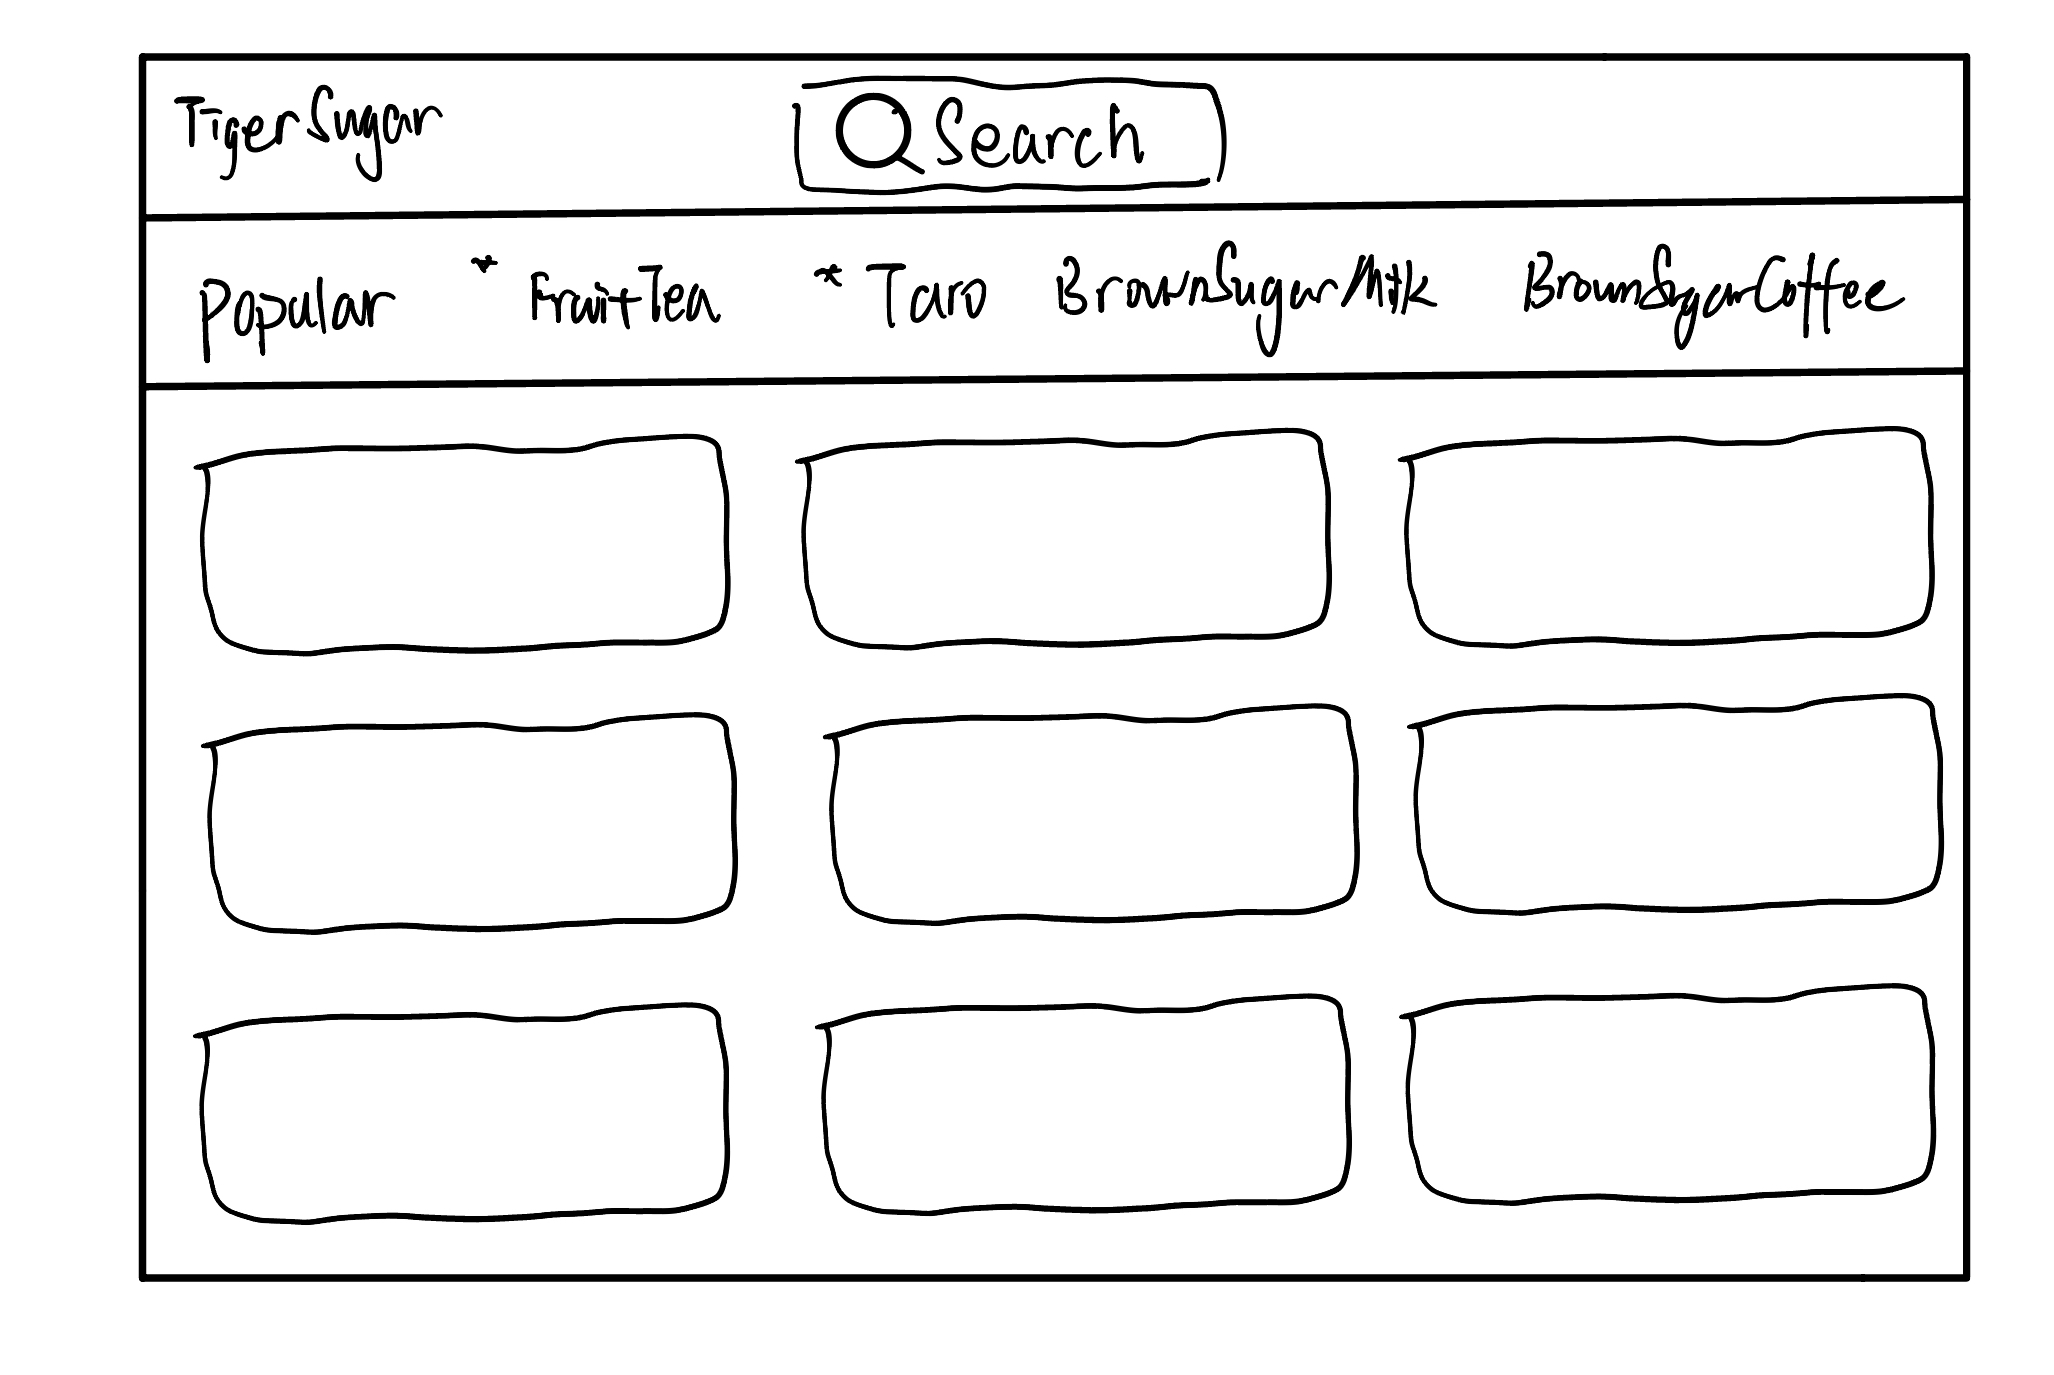 TigerSugar
Search
Popular * FruitTea * Taro BrownSugarMilk BrownSugarCoffee